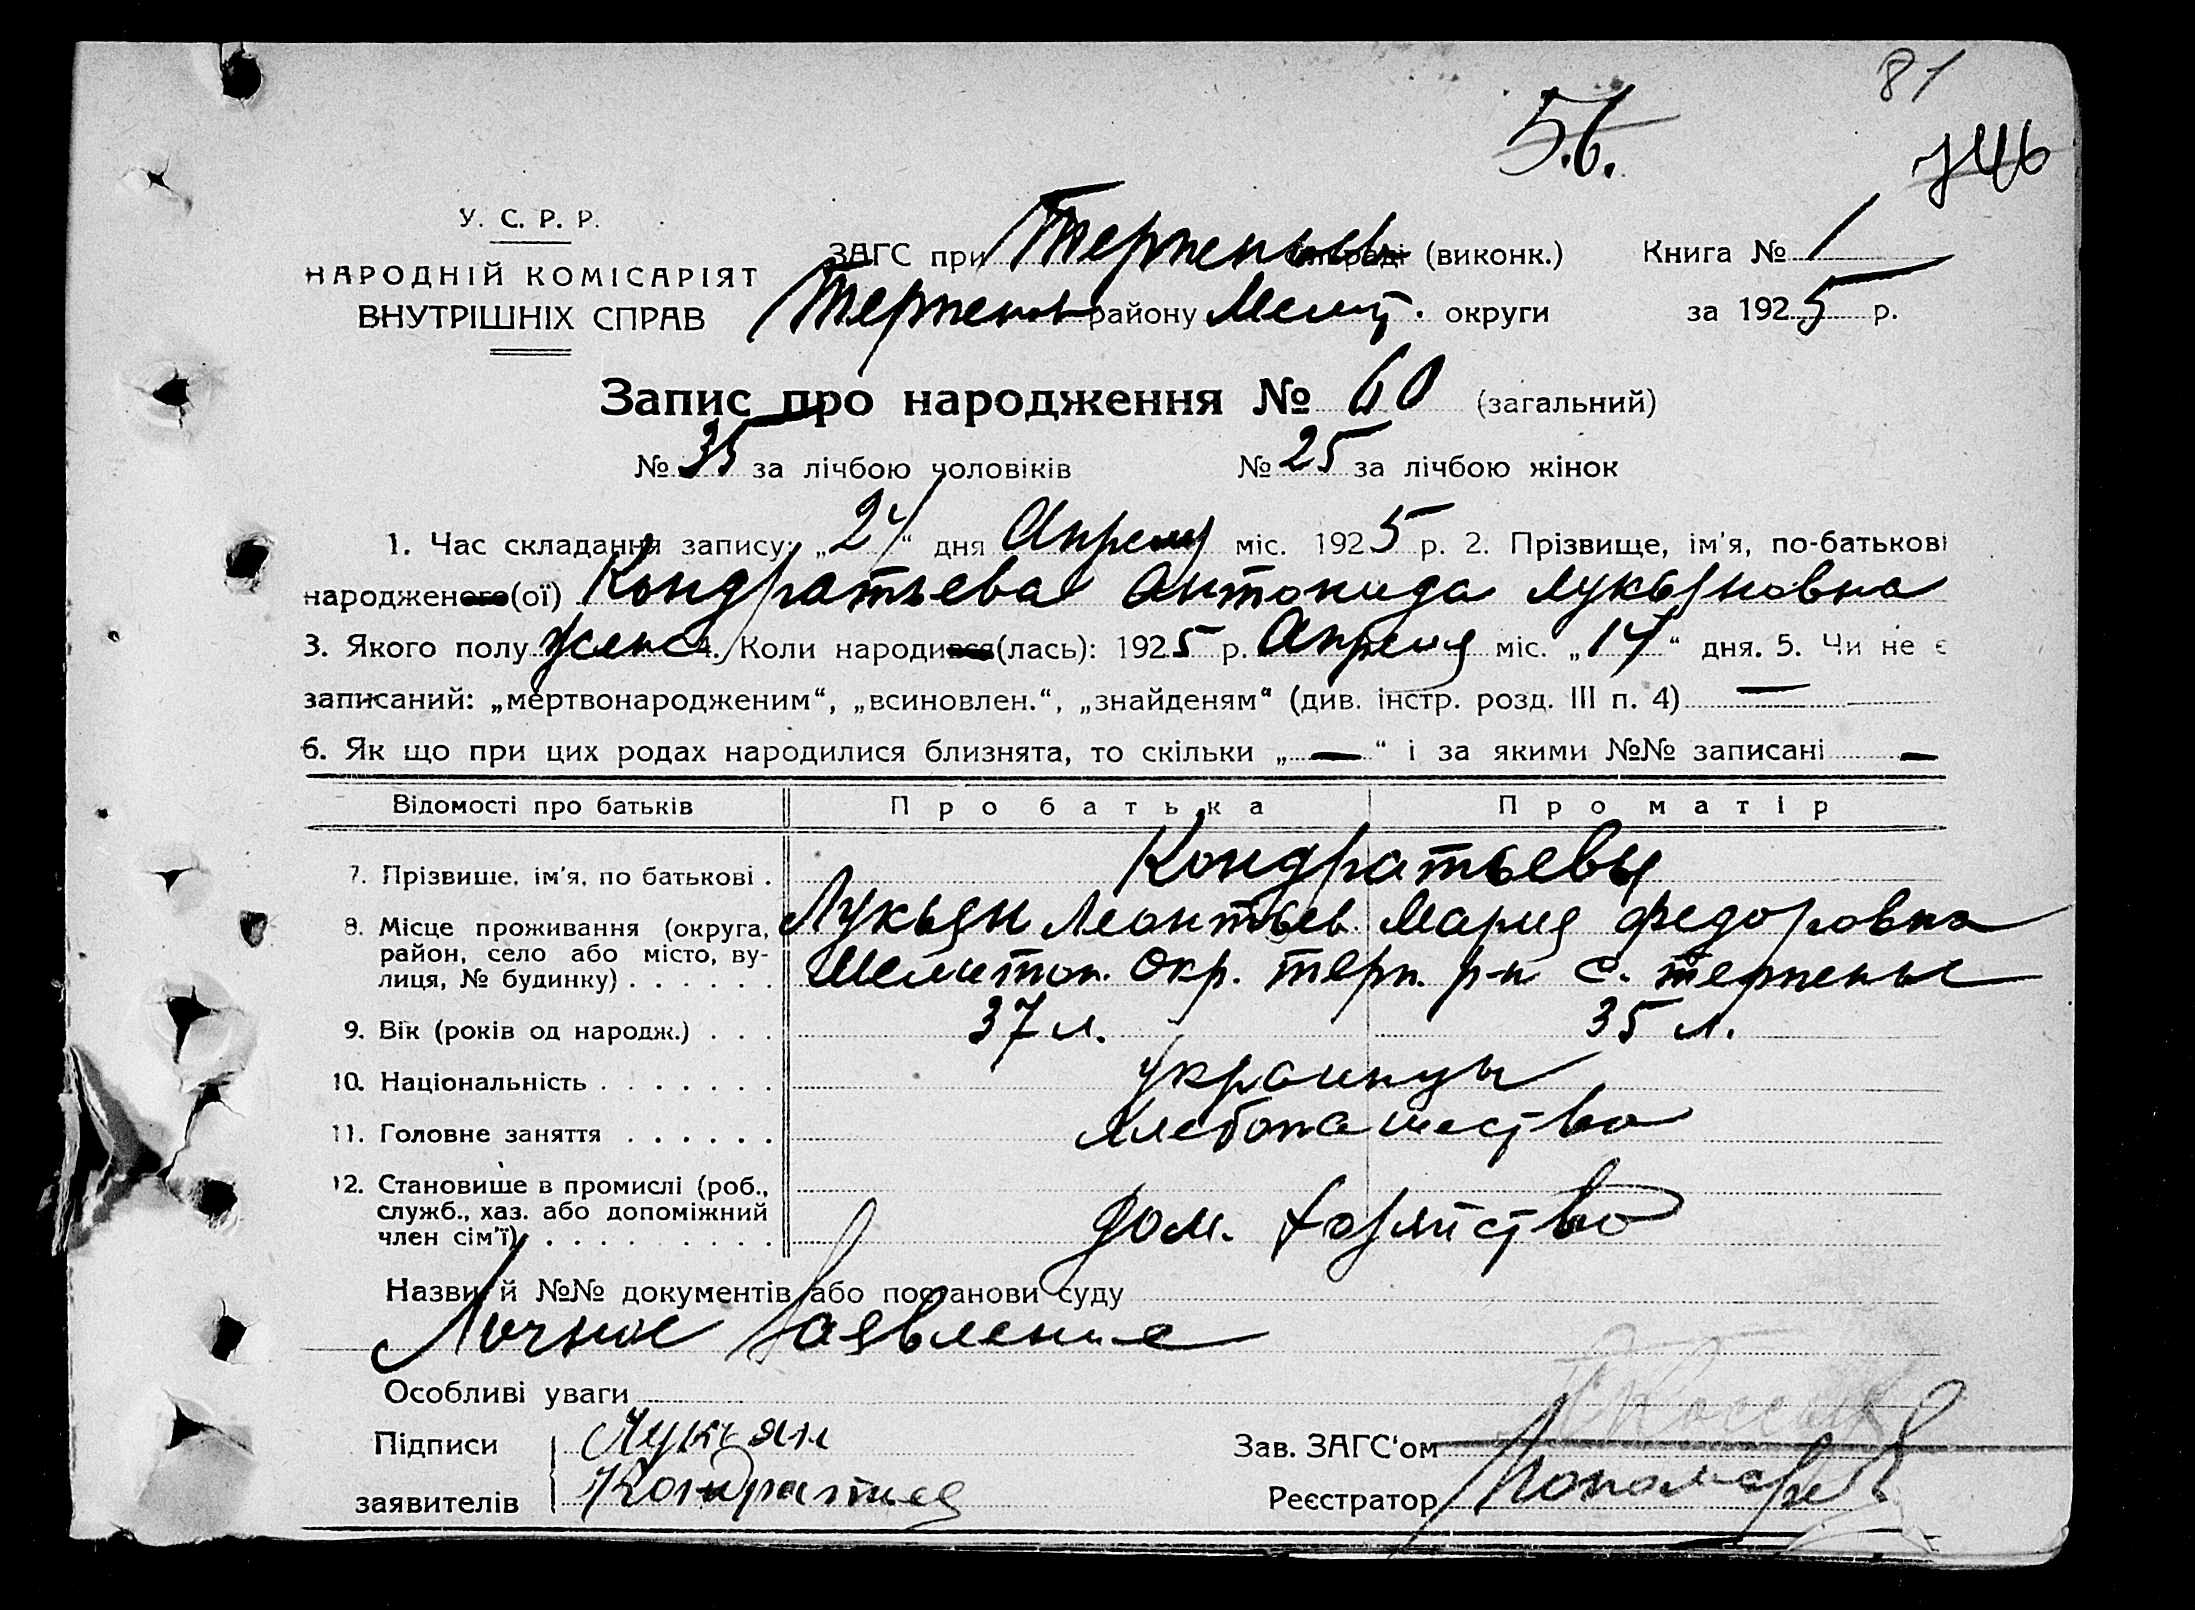 81
56.
У. С. Р. Р.
НАРОДНІЙ КОМІСАРІЯТ
ВНУТРІШНІХ СПРАВ
ЗАГС при Терпеньев (виконк.) Книга № 1
Терпен. району Мелит. округи за 1925 р.
Запис про народження № 60 (загальний)
№ 35 за лічбою чоловіків № 25 за лічбою жінок
1. Час складання запису: „24“ дня Апреля міс. 1925 р. 2. Прізвище, ім'я, по-батькові
народженого(ої) Кондратьева Антонида Лукьяновна
3. Якого полу женс 4. Коли народився(лась): 1925 р. Апреля міс. „14“ дня. 5. Чи не є
записаний: „мертвонародженим“, „всиновлен.“, „знайденям“ (див. інстр. розд. III п. 4) —
6. Як що при цих родах народилися близнята, то скільки „—“ і за якими №№ записані —
Відомості про батьків Про батька Про матір
7. Прізвище, ім'я, по батькові . Кондратьевы
Лукьян Леонтьев Мария Федоровна
8. Місце проживання (округа, район, село або місто, вулиця, № будинку) . . . . . . Мелитоп. Окр. Терп. р-н С. Терпенье
9. Вік (років од народж.) . . . 37 л. 35 л.
10. Національність . . . . . . . украинцы
11. Головне заняття . . . . . . Хлебопашество
12. Становище в промислі (роб., служб., хаз. або допоміжний член сім'ї) . . . . . . . . . дом. хозяйство
Назви й №№ документів або постанови суду
Личное Заявление
Особливі уваги
Підписи Лукьян
заявителів Кондратьев
Зав. ЗАГС'ом
Реєстратор Пономарев